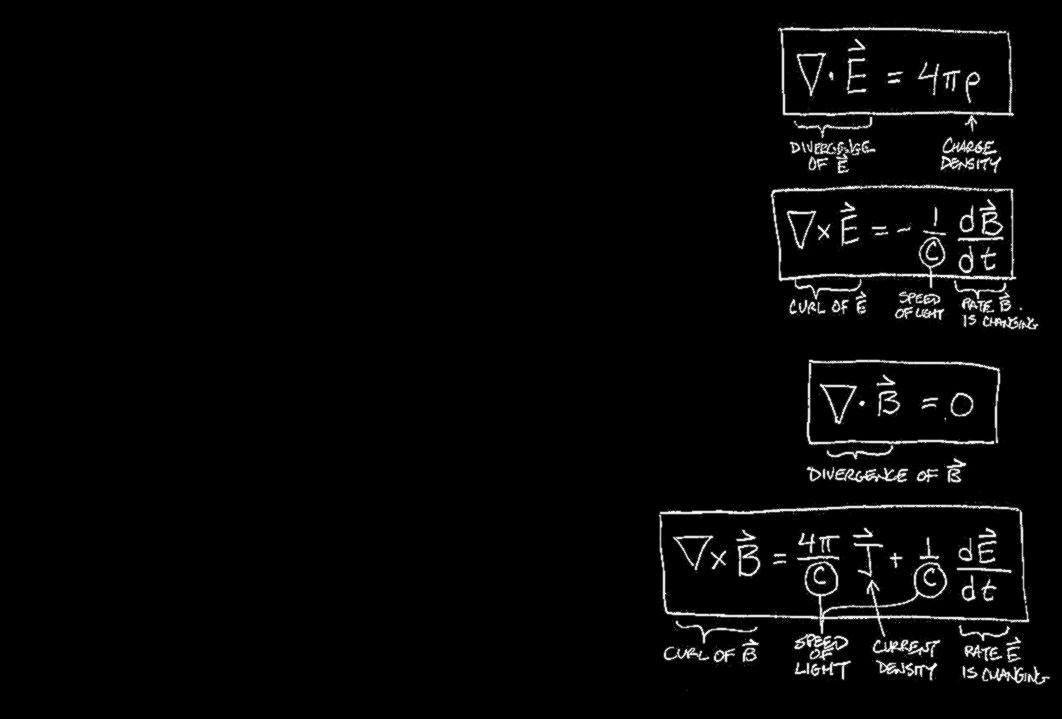 ∇·E⃗ = 4πρ
DIVERGENCE
OF E⃗
CHARGE
DENSITY
∇×E⃗ = - 1/C dB⃗/dt
CURL OF E⃗
SPEED
OF LIGHT
RATE B⃗
IS CHANGING
∇·B⃗ = 0
DIVERGENCE OF B⃗
∇×B⃗ = 4π/C J⃗ + 1/C dE⃗/dt
CURL OF B⃗
SPEED
OF
LIGHT
CURRENT
DENSITY
RATE E⃗
IS CHANGING